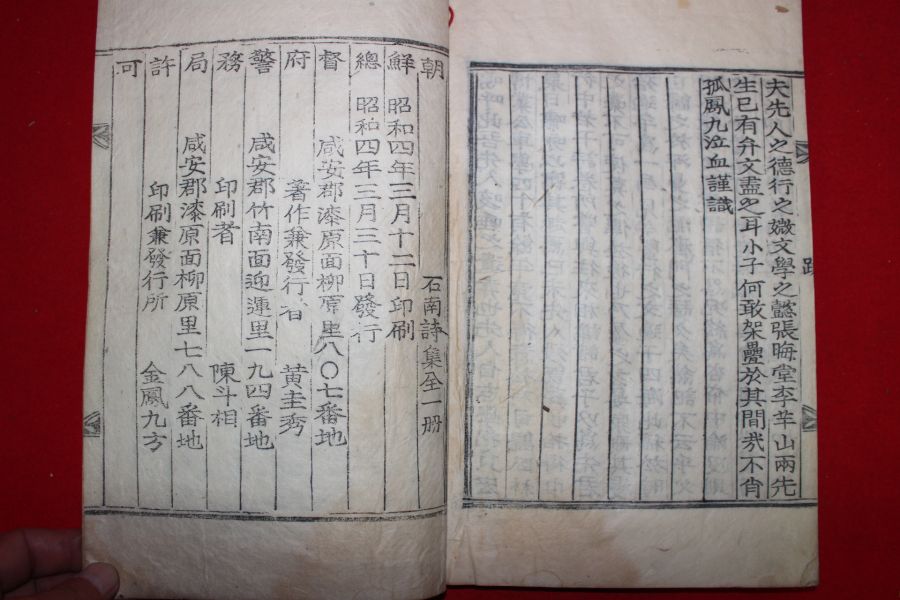 夫先人之德行之媺文學之懿張晦堂李羊山兩先
生已有弁文盡之耳小子何敢架疊於其間哉不肖
孤鳳九泣血謹識
跋
石南詩集全一册
朝鮮總督府警務局許可
昭和四年三月十二日印刷
昭和四年三月三十日發行
咸安郡漆原面柳原里八〇七番地
著作兼發行者 黃圭秀
咸安郡竹南面迎運里一九四番地
印刷者 陳斗相
咸安郡漆原面柳原里七八八番地
印刷兼發行所 金鳳九方